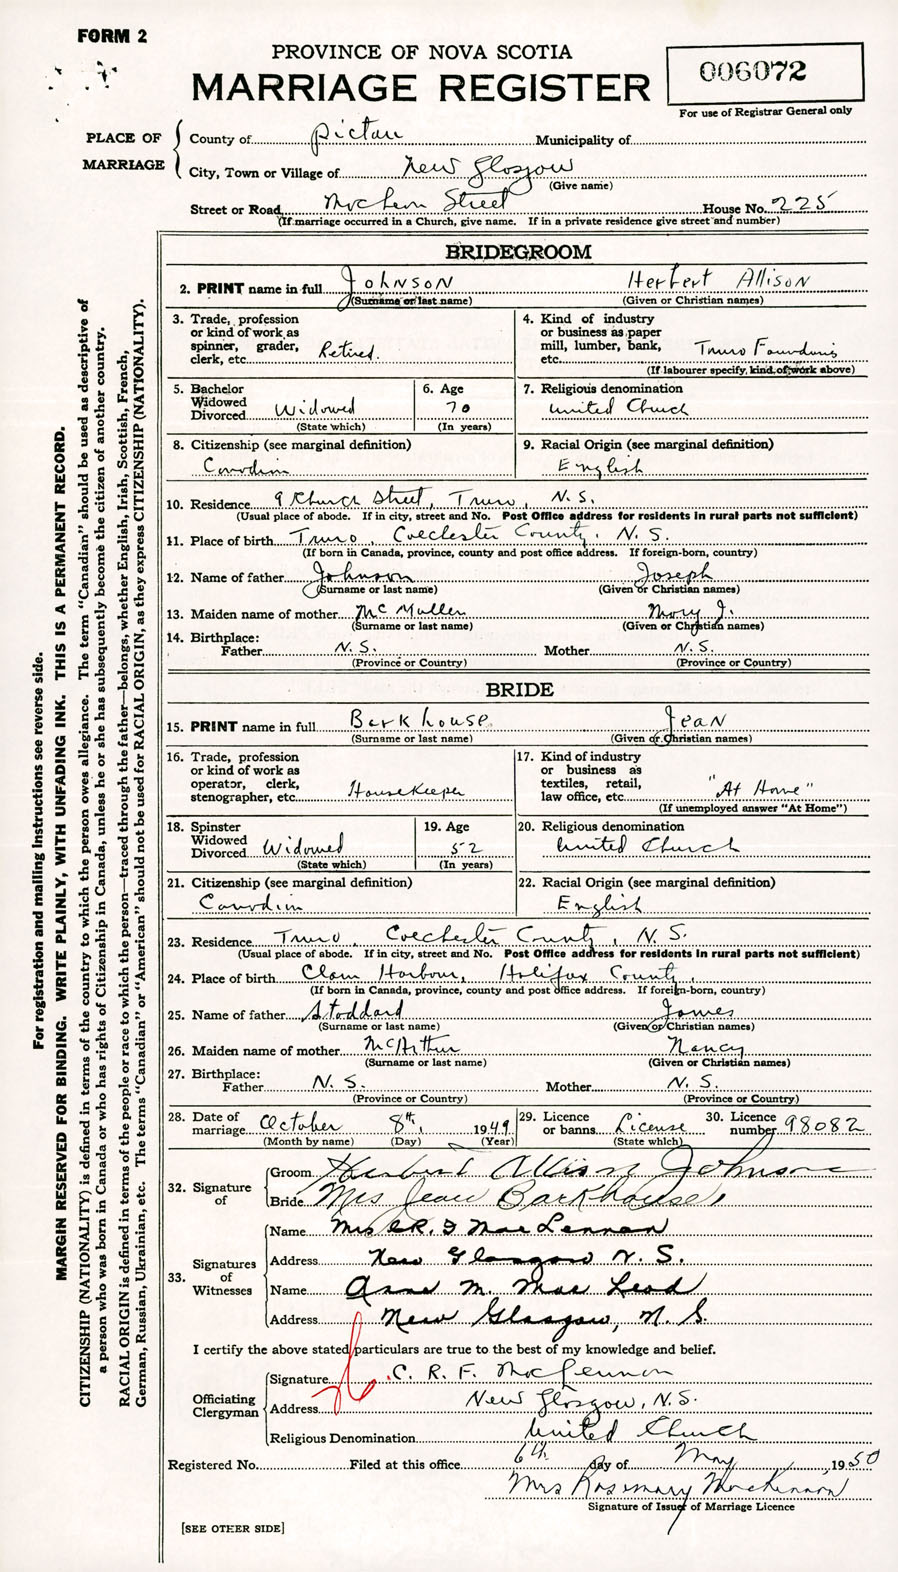 FORM 2
PROVINCE OF NOVA SCOTIA
MARRIAGE REGISTER
006072
For use of Registrar General only
PLACE OF MARRIAGE
County of Pictou Municipality of
City, Town or Village of New Glasgow
(Give name)
Street or Road McLean Street House No. 225
(If marriage occurred in a Church, give name. If in a private residence give street and number)
BRIDEGROOM
2. PRINT name in full Johnson Herbert Allison
(Surname or last name) (Given or Christian names)
3. Trade, profession or kind of work as spinner, grader, clerk, etc. Retired.
4. Kind of industry or business as paper mill, lumber, bank, etc. Truro Foundries
(If labourer specify kind of work above)
5. Bachelor Widowed Divorced Widowed
(State which)
6. Age 70
(In years)
7. Religious denomination United Church
8. Citizenship (see marginal definition) Canadian
9. Racial Origin (see marginal definition) English
10. Residence 9 Church Street, Truro, N.S.
(Usual place of abode. If in city, street and No. Post Office address for residents in rural parts not sufficient)
11. Place of birth Truro, Colchester County, N.S.
(If born in Canada, province, county and post office address. If foreign-born, country)
12. Name of father Johnson Joseph
(Surname or last name) (Given or Christian names)
13. Maiden name of mother McMullen Mary J.
(Surname or last name) (Given or Christian names)
14. Birthplace:
Father N.S. Mother N.S.
(Province or Country) (Province or Country)
BRIDE
15. PRINT name in full Barkhouse Jean
(Surname or last name) (Given or Christian names)
16. Trade, profession or kind of work as operator, clerk, stenographer, etc. Housekeeper
17. Kind of industry or business as textiles, retail, law office, etc. "At Home"
(If unemployed answer "At Home")
18. Spinster Widowed Divorced Widowed
(State which)
19. Age 52
(In years)
20. Religious denomination United Church
21. Citizenship (see marginal definition) Canadian
22. Racial Origin (see marginal definition) English
23. Residence Truro, Colchester County, N.S.
(Usual place of abode. If in city, street and No. Post Office address for residents in rural parts not sufficient)
24. Place of birth Clam Harbour, Halifax County,
(If born in Canada, province, county and post office address. If foreign-born, country)
25. Name of father Stoddard James
(Surname or last name) (Given or Christian names)
26. Maiden name of mother McArthur Nancy
(Surname or last name) (Given or Christian names)
27. Birthplace:
Father N.S. Mother N.S.
(Province or Country) (Province or Country)
28. Date of marriage October 8th, 1949
(Month by name) (Day) (Year)
29. Licence or banns License
(State which)
30. Licence number 98082
32. Signature of
Groom Herbert Allison Johnson
Bride Mrs Jean Barkhouse,
33. Signatures of Witnesses
Name Mrs C.R.F MacLennan
Address New Glasgow N.S.
Name Anne M. MacLeod
Address New Glasgow, N.S.
I certify the above stated particulars are true to the best of my knowledge and belief.
Officiating Clergyman
Signature C. R. F. MacLennan
Address New Glasgow, N.S.
Religious Denomination United Church
Registered No. Filed at this office 6th day of May, 1950
Mrs Rosemary MacKinnon
Signature of Issuer of Marriage Licence
[SEE OTHER SIDE]
For registration and mailing instructions see reverse side.
MARGIN RESERVED FOR BINDING. WRITE PLAINLY, WITH UNFADING INK. THIS IS A PERMANENT RECORD.
CITIZENSHIP (NATIONALITY) is defined in terms of the country to which the person owes allegiance. The term "Canadian" should be used as descriptive of
a person who was born in Canada or who has rights of Citizenship in Canada, unless he or she has subsequently become the citizen of another country.
RACIAL ORIGIN is defined in terms of the people or race to which the person—traced through the father—belongs, whether English, Irish, Scottish, French,
German, Russian, Ukrainian, etc. The terms "Canadian" or "American" should not be used for RACIAL ORIGIN, as they express CITIZENSHIP (NATIONALITY).